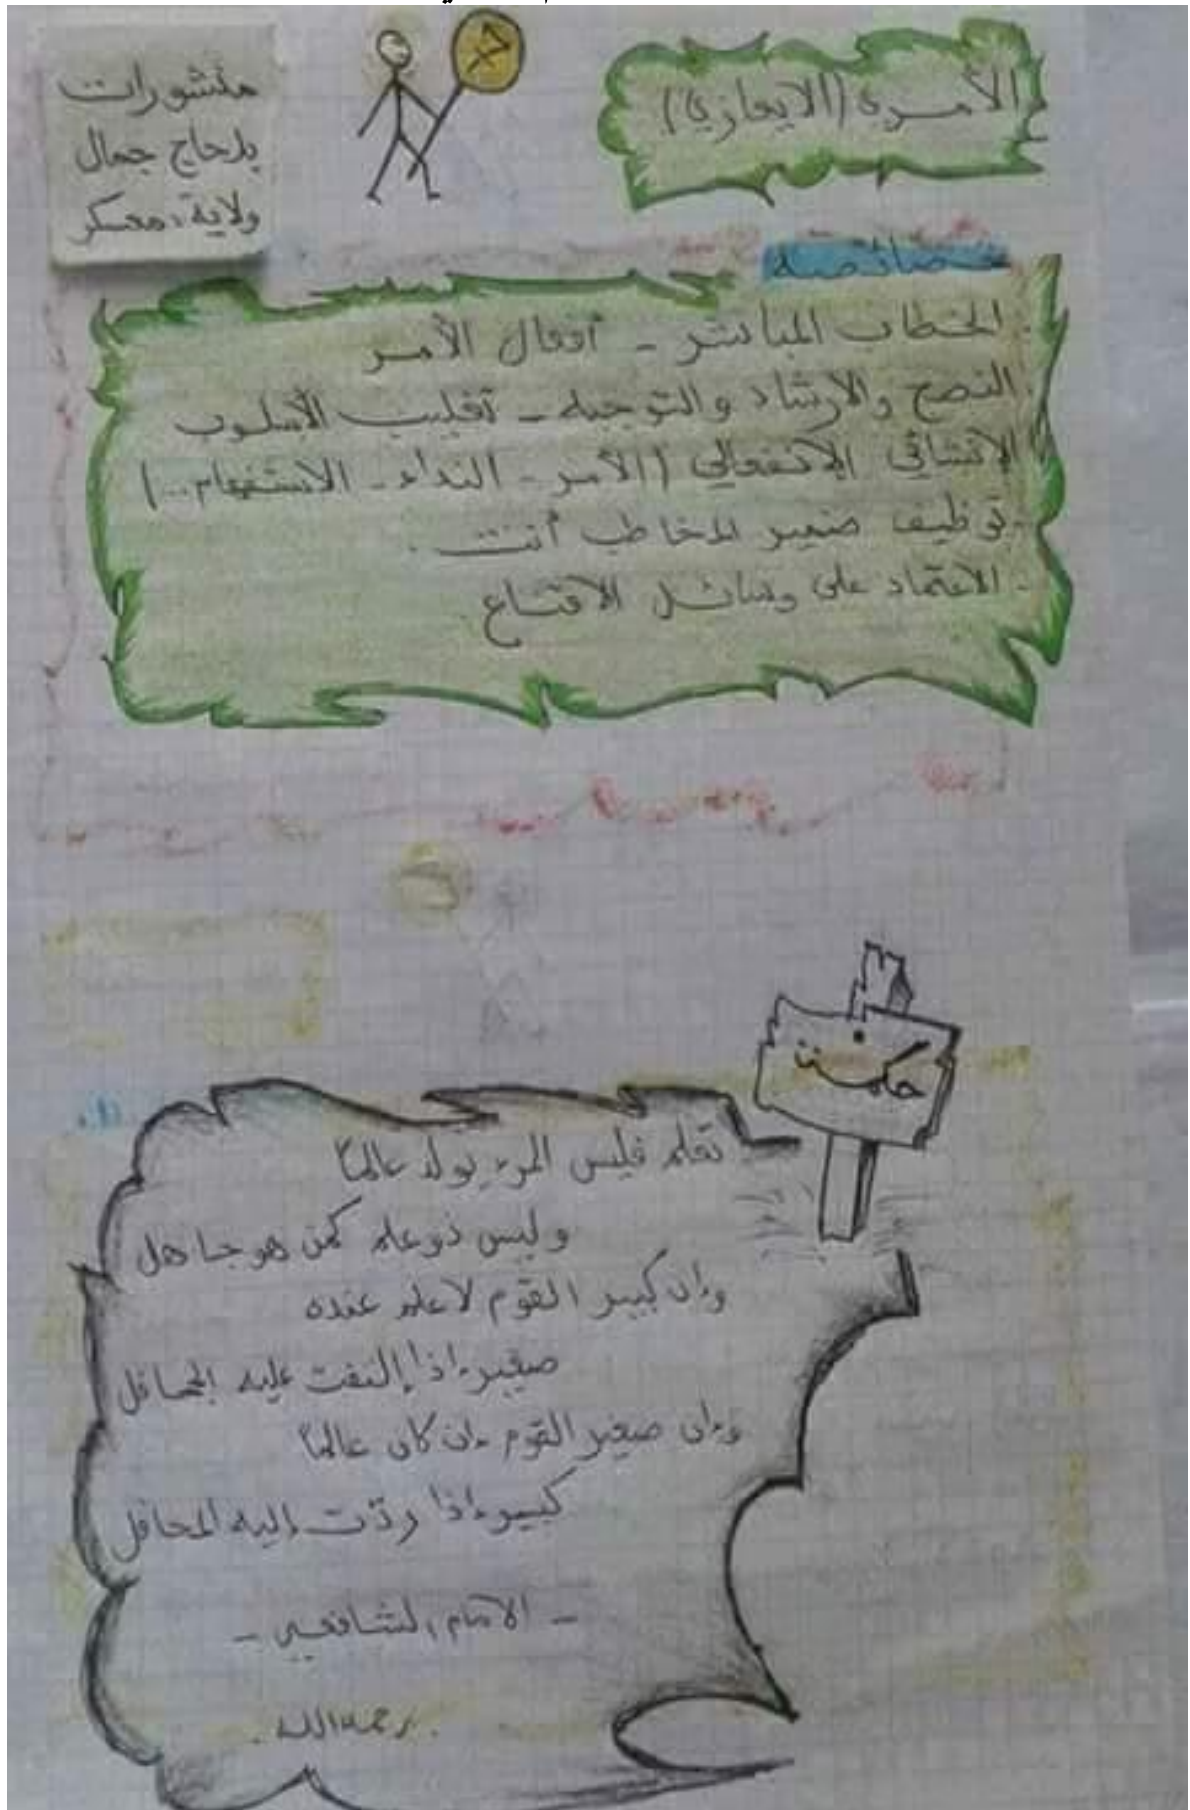 الأمري (الايعازي)
منشورات
بلحاج جمال
ولاية، معسكر
خصائصه
- الخطاب المباشر - أفعال الأمر
النصح والارشاد والتوجيه - تغليب الأسلوب
الإنشائي الانفعالي (الأمر - النداء - الاستفهام...)
- توظيف ضمير المخاطب أنت .
- الاعتماد على وسائل الاقناع .
حكمة
تعلم فليس المرء يولد عالما
وليس ذو علم كمن هو جاهل
وإن كبير القوم لا علم عنده
صغير إذا إلتفت عليه الجحافل
وإن صغير القوم إن كان عالما
كبير إذا ردت إليه المحافل
- الامام الشافعي -
رحمه الله .